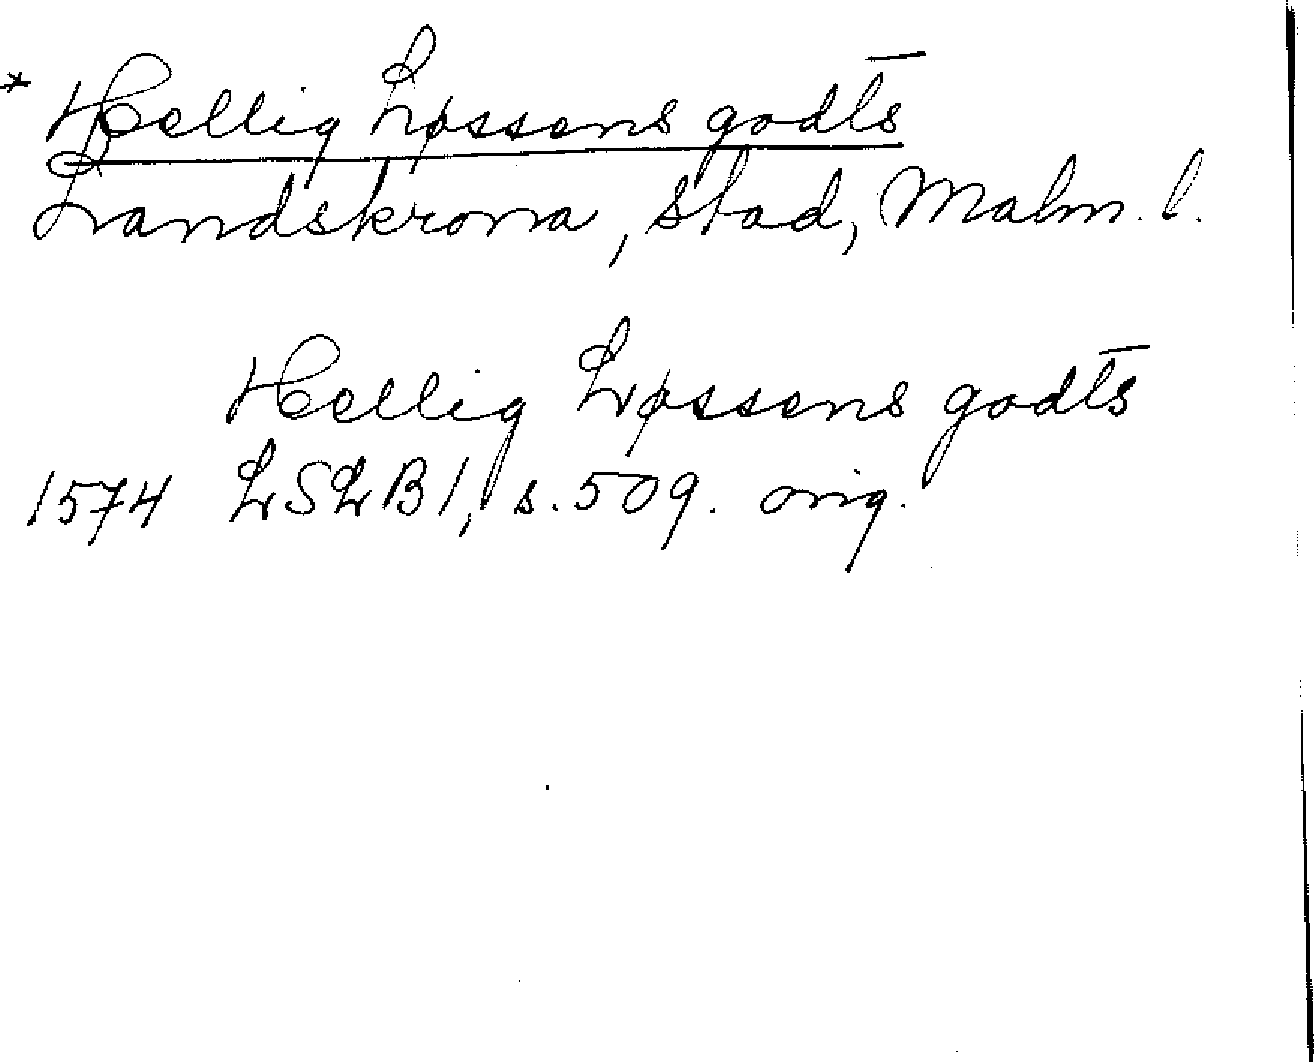 * Hellig Løssens godt̅s
Landskrona, stad, Malm. l.
Hellig Løssens godt̅s
1574 LSLB I, s. 509. orig.